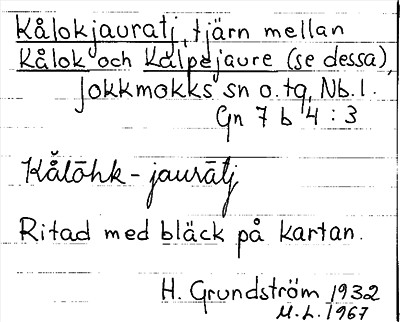 Kålokjauratj, tjärn mellan
Kålok och Kalpejaure (se dessa),
Jokkmokks sn o. tg, Nb. l.
Gn 7 b 4 : 3
Kå̆lōhk - jaurātj
Ritad med bläck på kartan.
H. Grundström 1932
M. L. 1967